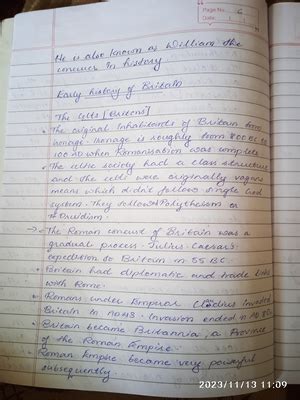 Page No. 6
Date:
He is also known as William the
conquer in history
Early history of Britain
The Celts [Britons]
The original Inhabitants of Britain from
ironage. Ironage is roughly from 800 BC to
100 AD when Romanisation was complete
The celtic society had a class structure
and the celts were originally vagans
means which didn't follows single God
system. They follows Polytheism or
Druidism
→ The Roman conquest of Britain was a
gradual process. Julius Caesar's
expedition to Britain in 55 BC.
Britain had diplomatic and trade links
with Rome
Romans under Emperor Invaded
Britain in AD43. Invasion ended in AD 80
Britain became Britannia, a Province
of the Roman Empire.
Roman Empire became very powerful
subsequently
2023/11/13 11:09